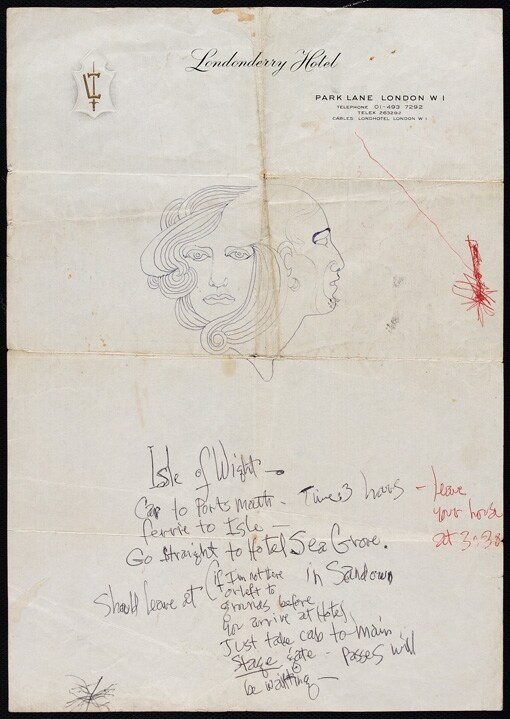 Londonderry Hotel
PARK LANE LONDON W1
TELEPHONE 01-493 7292
TELEX 263292
CABLES LONDHOTEL LONDON W1
Isle of Wight -
Car to Portsmath - Time: 3 hours - Leave
your house
at 3:30
ferrie to Isle -
Go straight to Hotel Sea Grove.
in Sandown
Should leave at (if I'm not there
or left to
grounds before
you arrive at Hotel
Just take cab to main
Stage gate - passes will
be waitting -